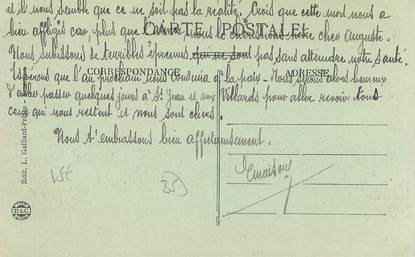 et il nous semble que ce ne soit pas la réalité. Crois que cette mort nous a
bien affligés car plus que nous le chérissions notre cher Auguste.
CARTE POSTALE
Nous subissons de terribles épreuves qui ne sont pas sans atteindre notre santé.
Espérons que l'an prochain nous conduira à la paix. Nous serons alors heureux
CORRESPONDANCE
ADRESSE
d'aller passer quelques jours à St Jean et aux Villards pour aller revoir tous
ceux qui nous restent et nous sont chers.
Nous t'embrassons bien affectueusement.
Edit. L. Gaillard-Prêtre
B&G